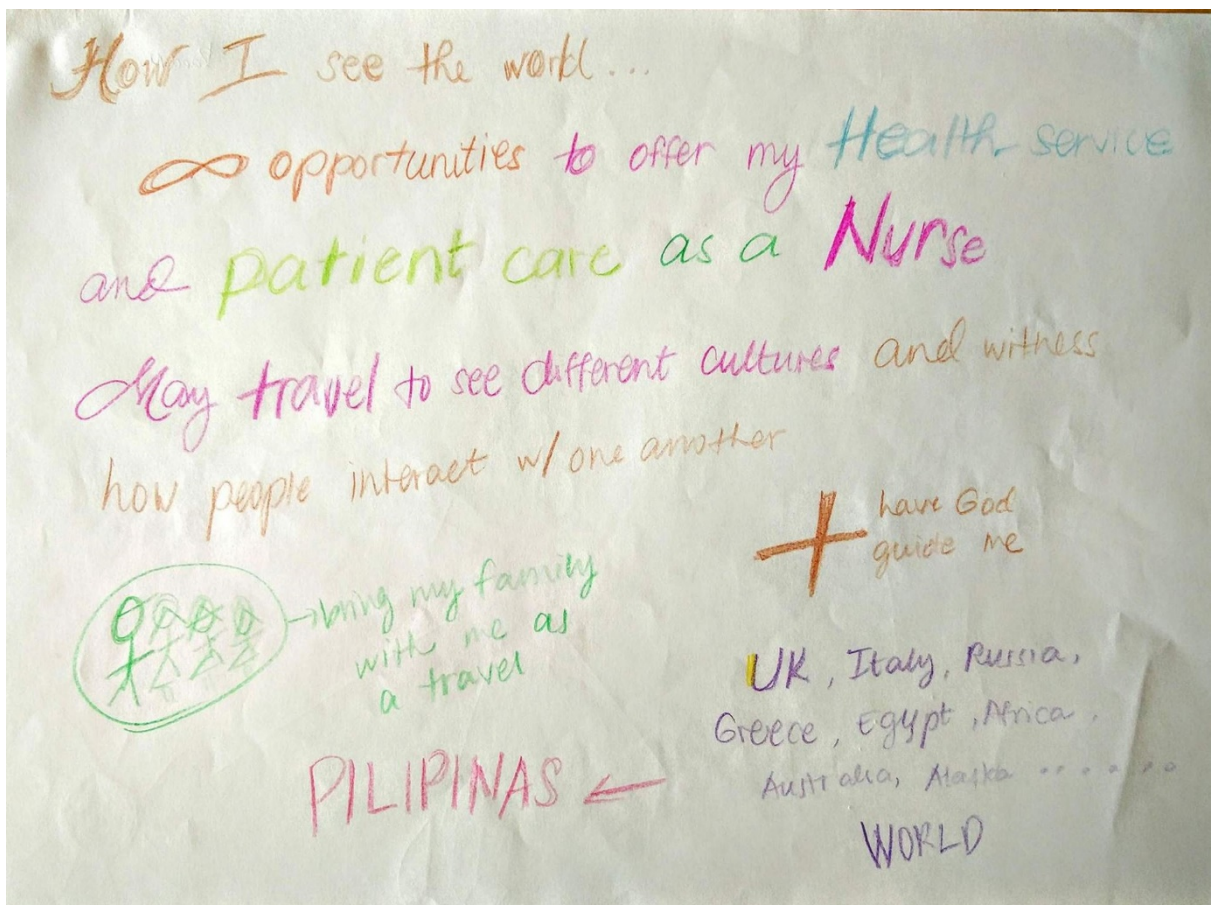 How I see the world...
∞ opportunities to offer my Health service
and patient care as a Nurse
May travel to see different cultures and witness
how people interact w/ one another
have God
guide me
→ bring my family
with me as
a travel
UK, Italy, Russia,
Greece, Egypt, Africa,
Australia, Alaska .......
WORLD
PILIPINAS ←